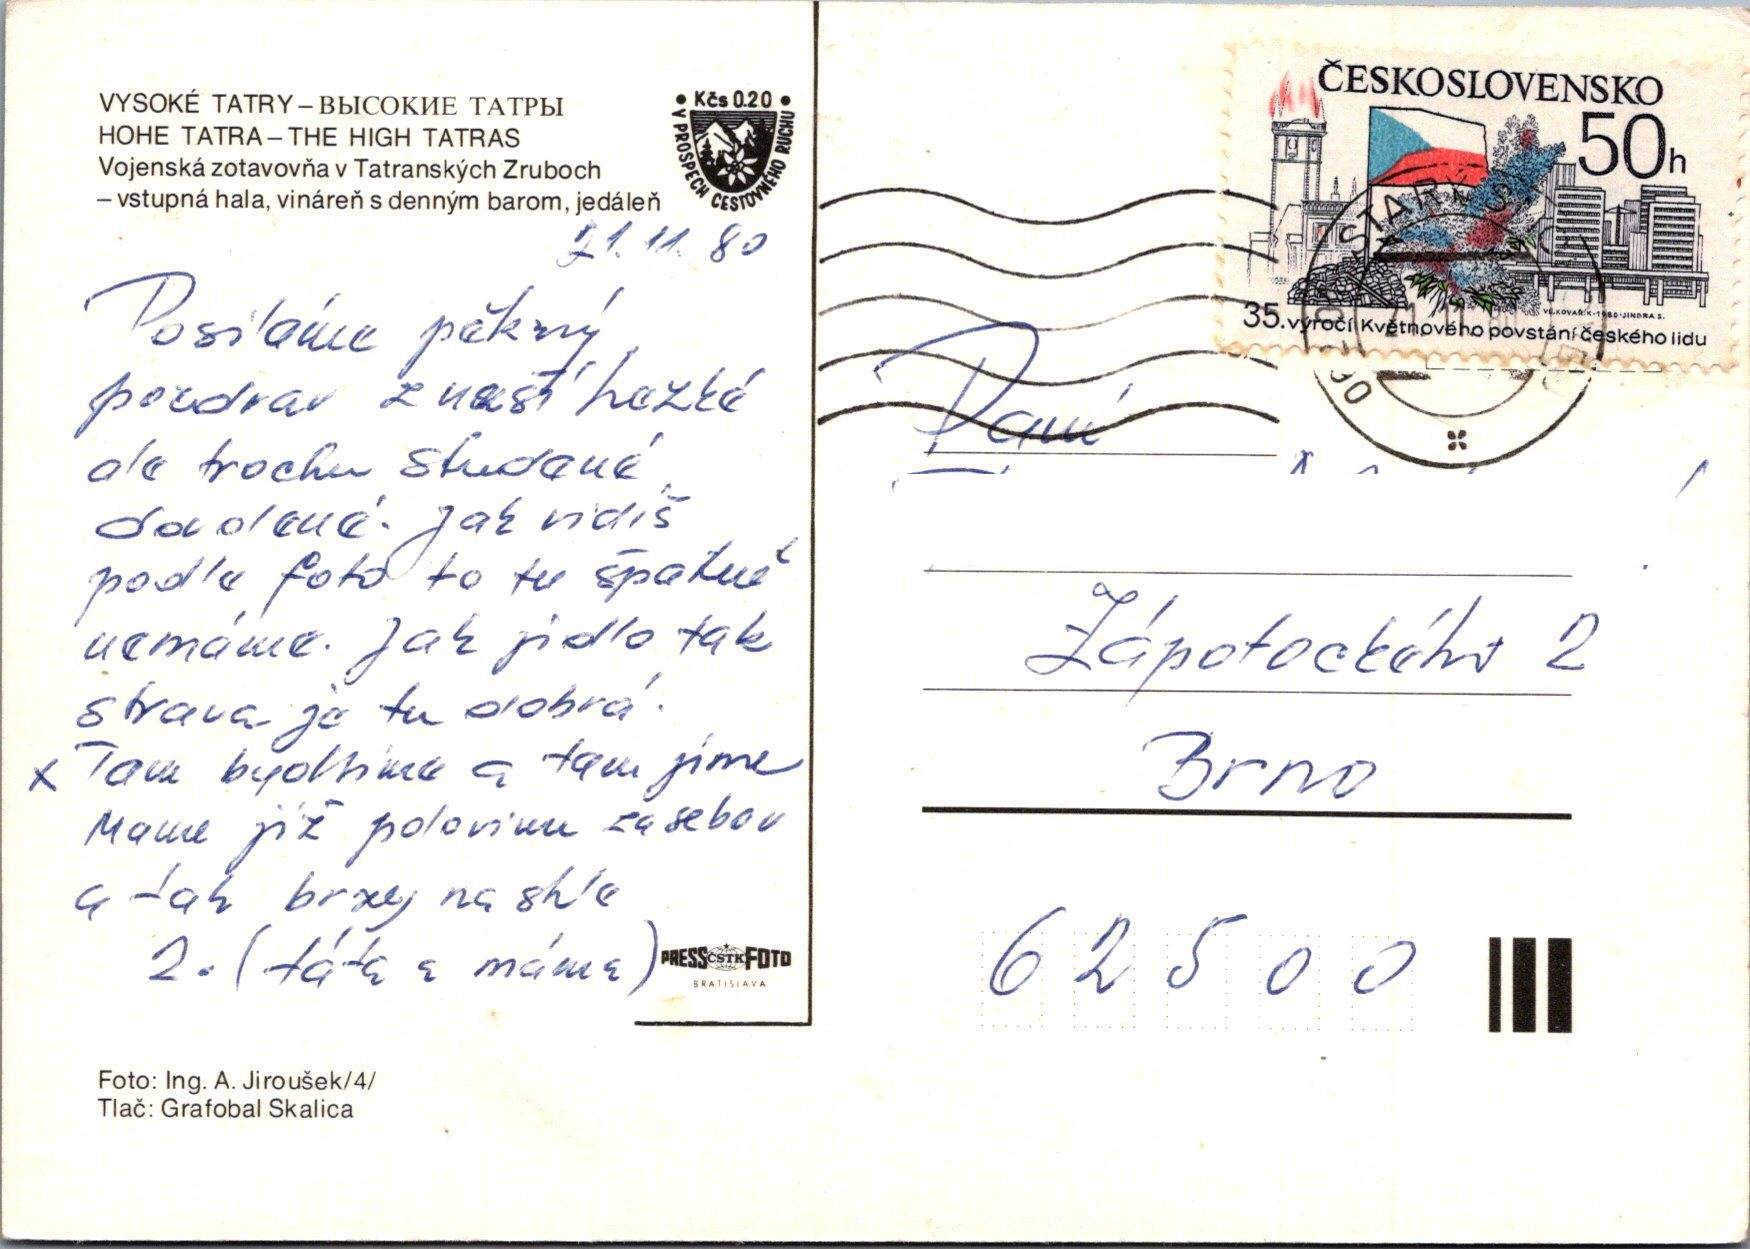 VYSOKÉ TATRY – ВЫСОКИЕ ТАТРЫ
HOHE TATRA – THE HIGH TATRAS
Vojenská zotavovňa v Tatranských Zruboch
– vstupná hala, vináreň s denným barom, jedáleň
• Kčs 0.20 •
V PROSPECH CESTOVNÉHO RUCHU
21. 11. 80
Posíláme pěkný
pozdrav z naší hezké
ale trochu studené
dovolené. Jak vidíš
podle foto to tu špatné
nemáme. Jak jidlo tak
strava je tu dobrá.
x Tam bydlíme a tam jíme
Mame již polovinu za sebou
a tak brzy na shle
2. (táta a máma)
PRESS ČSTK FOTO
BRATISLAVA
Foto: Ing. A. Jiroušek/4/
Tlač: Grafobal Skalica
ČESKOSLOVENSKO
50h
V. KOVÁŘÍK-1980-JINDRA S.
35. výročí Květnového povstání českého lidu
STARÝ
Paní
Zápotockého 2
Brno
62500